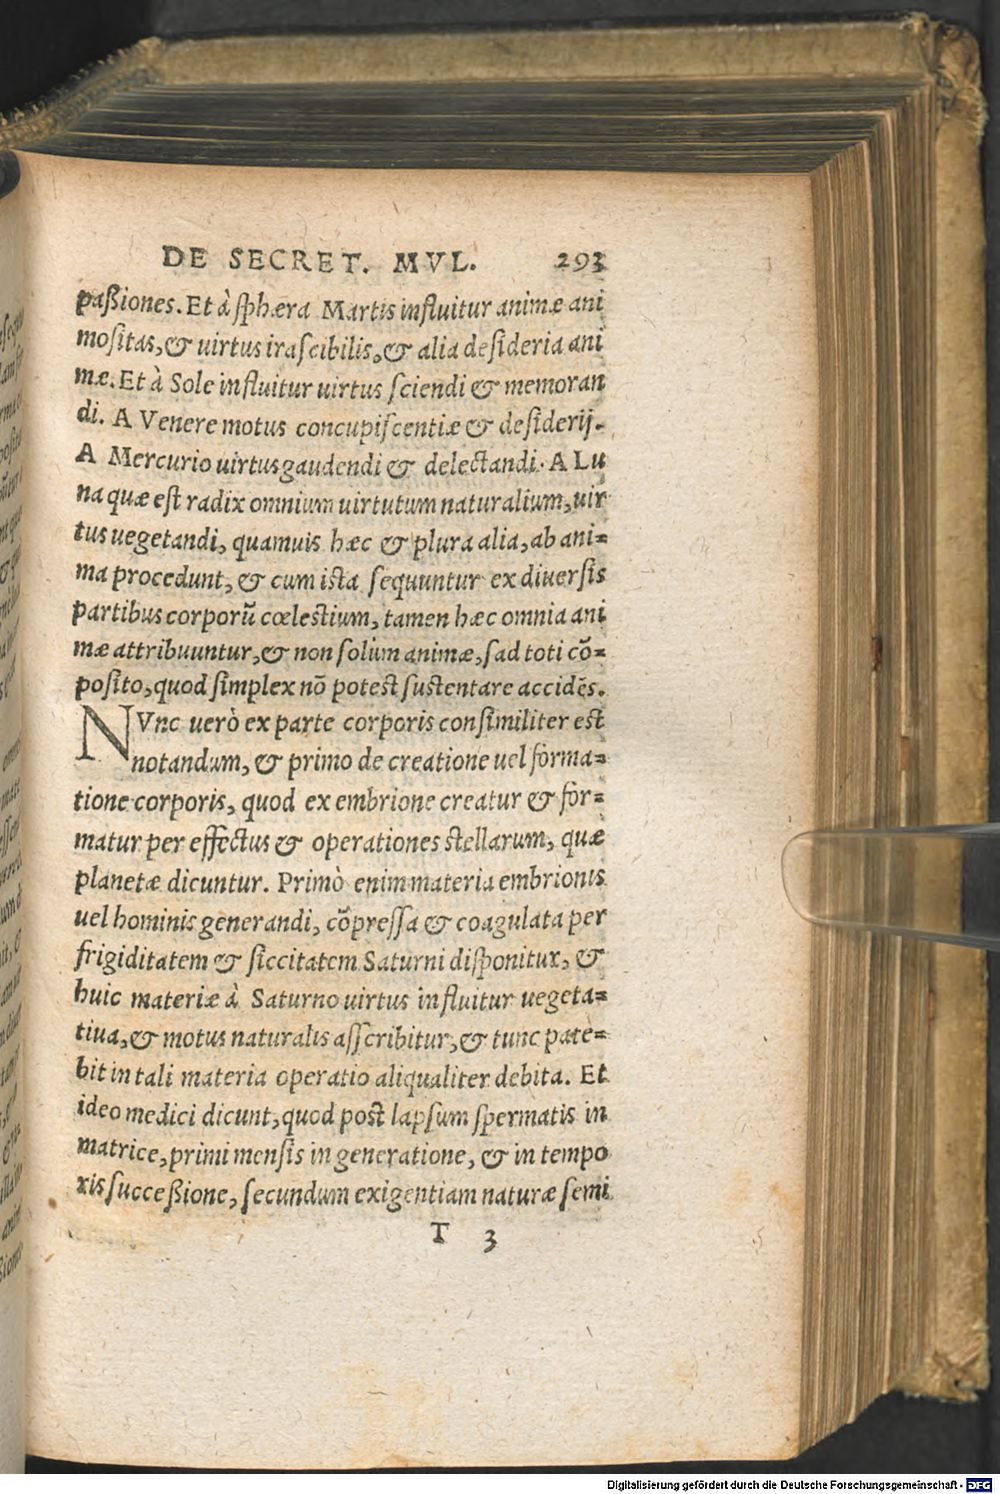 DE SECRET. MVL. 293
paßiones. Et à sphæra Martis influitur animæ ani
mositas, & uirtus irascibilis, & alia desideria ani
mæ. Et à Sole influitur uirtus sciendi & memoran
di. A Venere motus concupiscentiæ & desiderij.
A Mercurio uirtus gaudendi & delectandi. A Lu
na quæ est radix omnium uirtutum naturalium, uir
tus uegetandi, quamuis hæc & plura alia, ab ani=
ma procedunt, & cum ista sequuntur ex diuersis
partibus corporū cœlestium, tamen hæc omnia ani
mæ attribuuntur, & non solùm animæ, sad toti cō=
posito, quod simplex nō potest sustentare accidēs.
NVnc uerò ex parte corporis consimiliter est
notandum, & primo de creatione uel forma=
tione corporis, quod ex embrione creatur & for=
matur per effectus & operationes stellarum, quæ
planetæ dicuntur. Primò enim materia embrionis
uel hominis generandi, cōpressa & coagulata per
frigiditatem & siccitatem Saturni disponitur, &
huic materiæ à Saturno uirtus influitur uegeta=
tiua, & motus naturalis asscribitur, & tunc pate=
bit in tali materia operatio aliqualiter debita. Et
ideo medici dicunt, quod post lapsum spermatis in
matrice, primi mensis in generatione, & in tempo
ris succeßione, secundum exigentiam naturæ semi
T 3
Digitalisierung gefördert durch die Deutsche Forschungsgemeinschaft - DFG